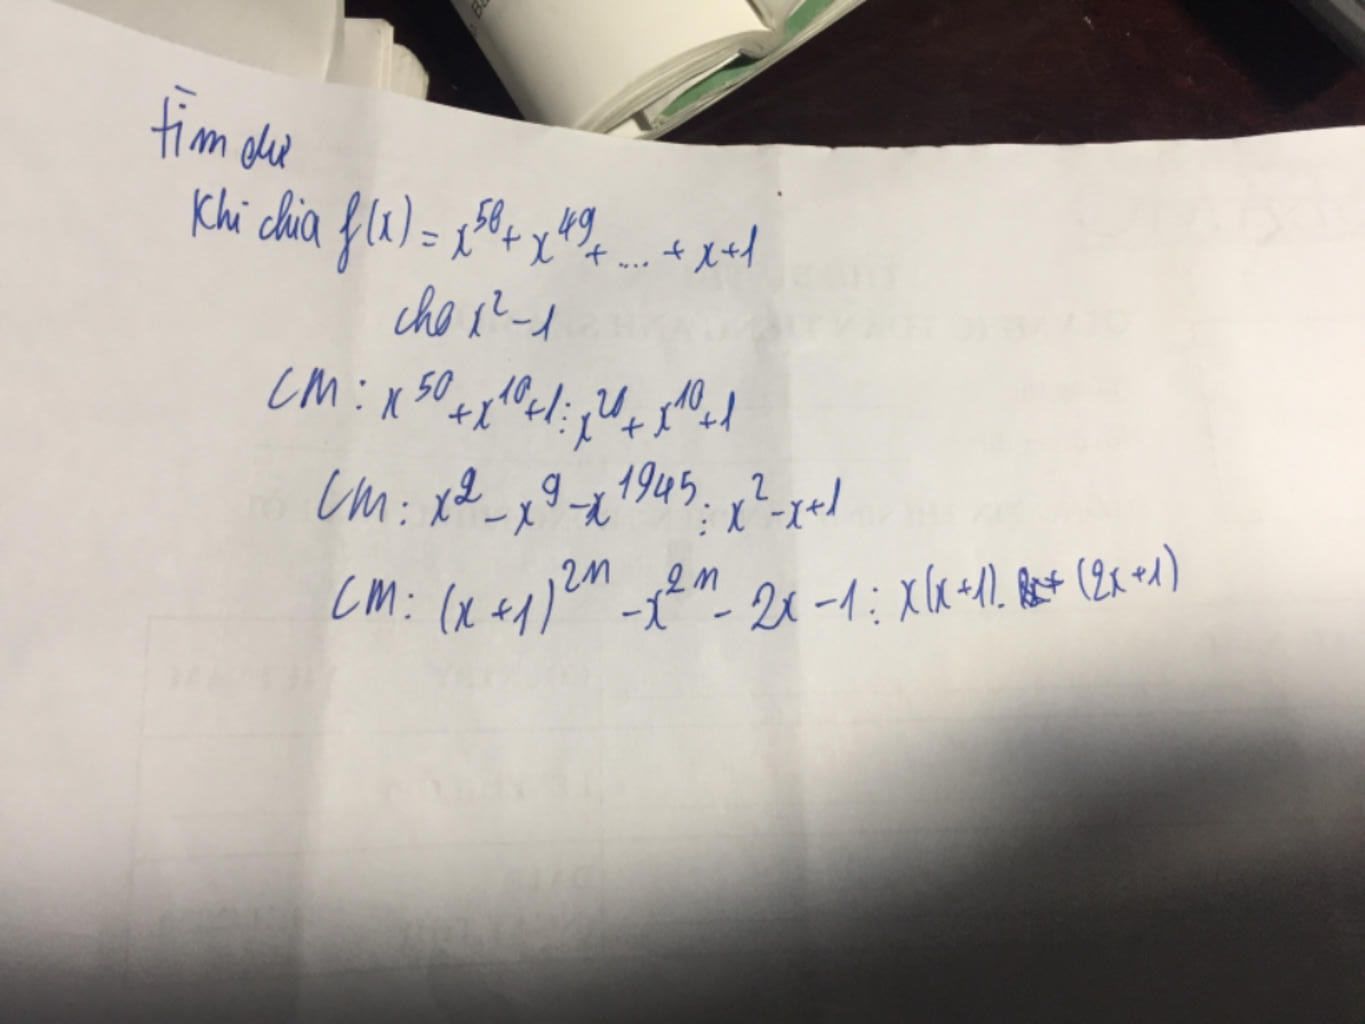 Tìm dư
Khi chia f(x) = x⁵⁰ + x⁴⁹ + ... + x + 1
cho x² - 1
CM: x⁵⁰ + x¹⁰ + 1 ⋮ x²⁰ + x¹⁰ + 1
CM: x² - x⁹ - x¹⁹⁴⁵ ⋮ x² - x + 1
CM: (x + 1)²ⁿ - x²ⁿ - 2x - 1 ⋮ x(x+1). (2x+1)